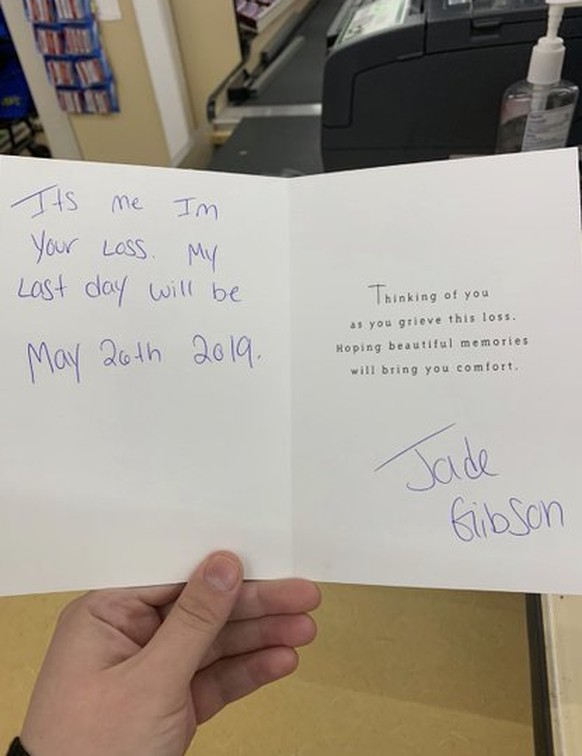 Its me Im
your Loss. My
Last day will be
May 26th 2019.
Thinking of you
as you grieve this loss.
Hoping beautiful memories
will bring you comfort.
Jade
Gibson